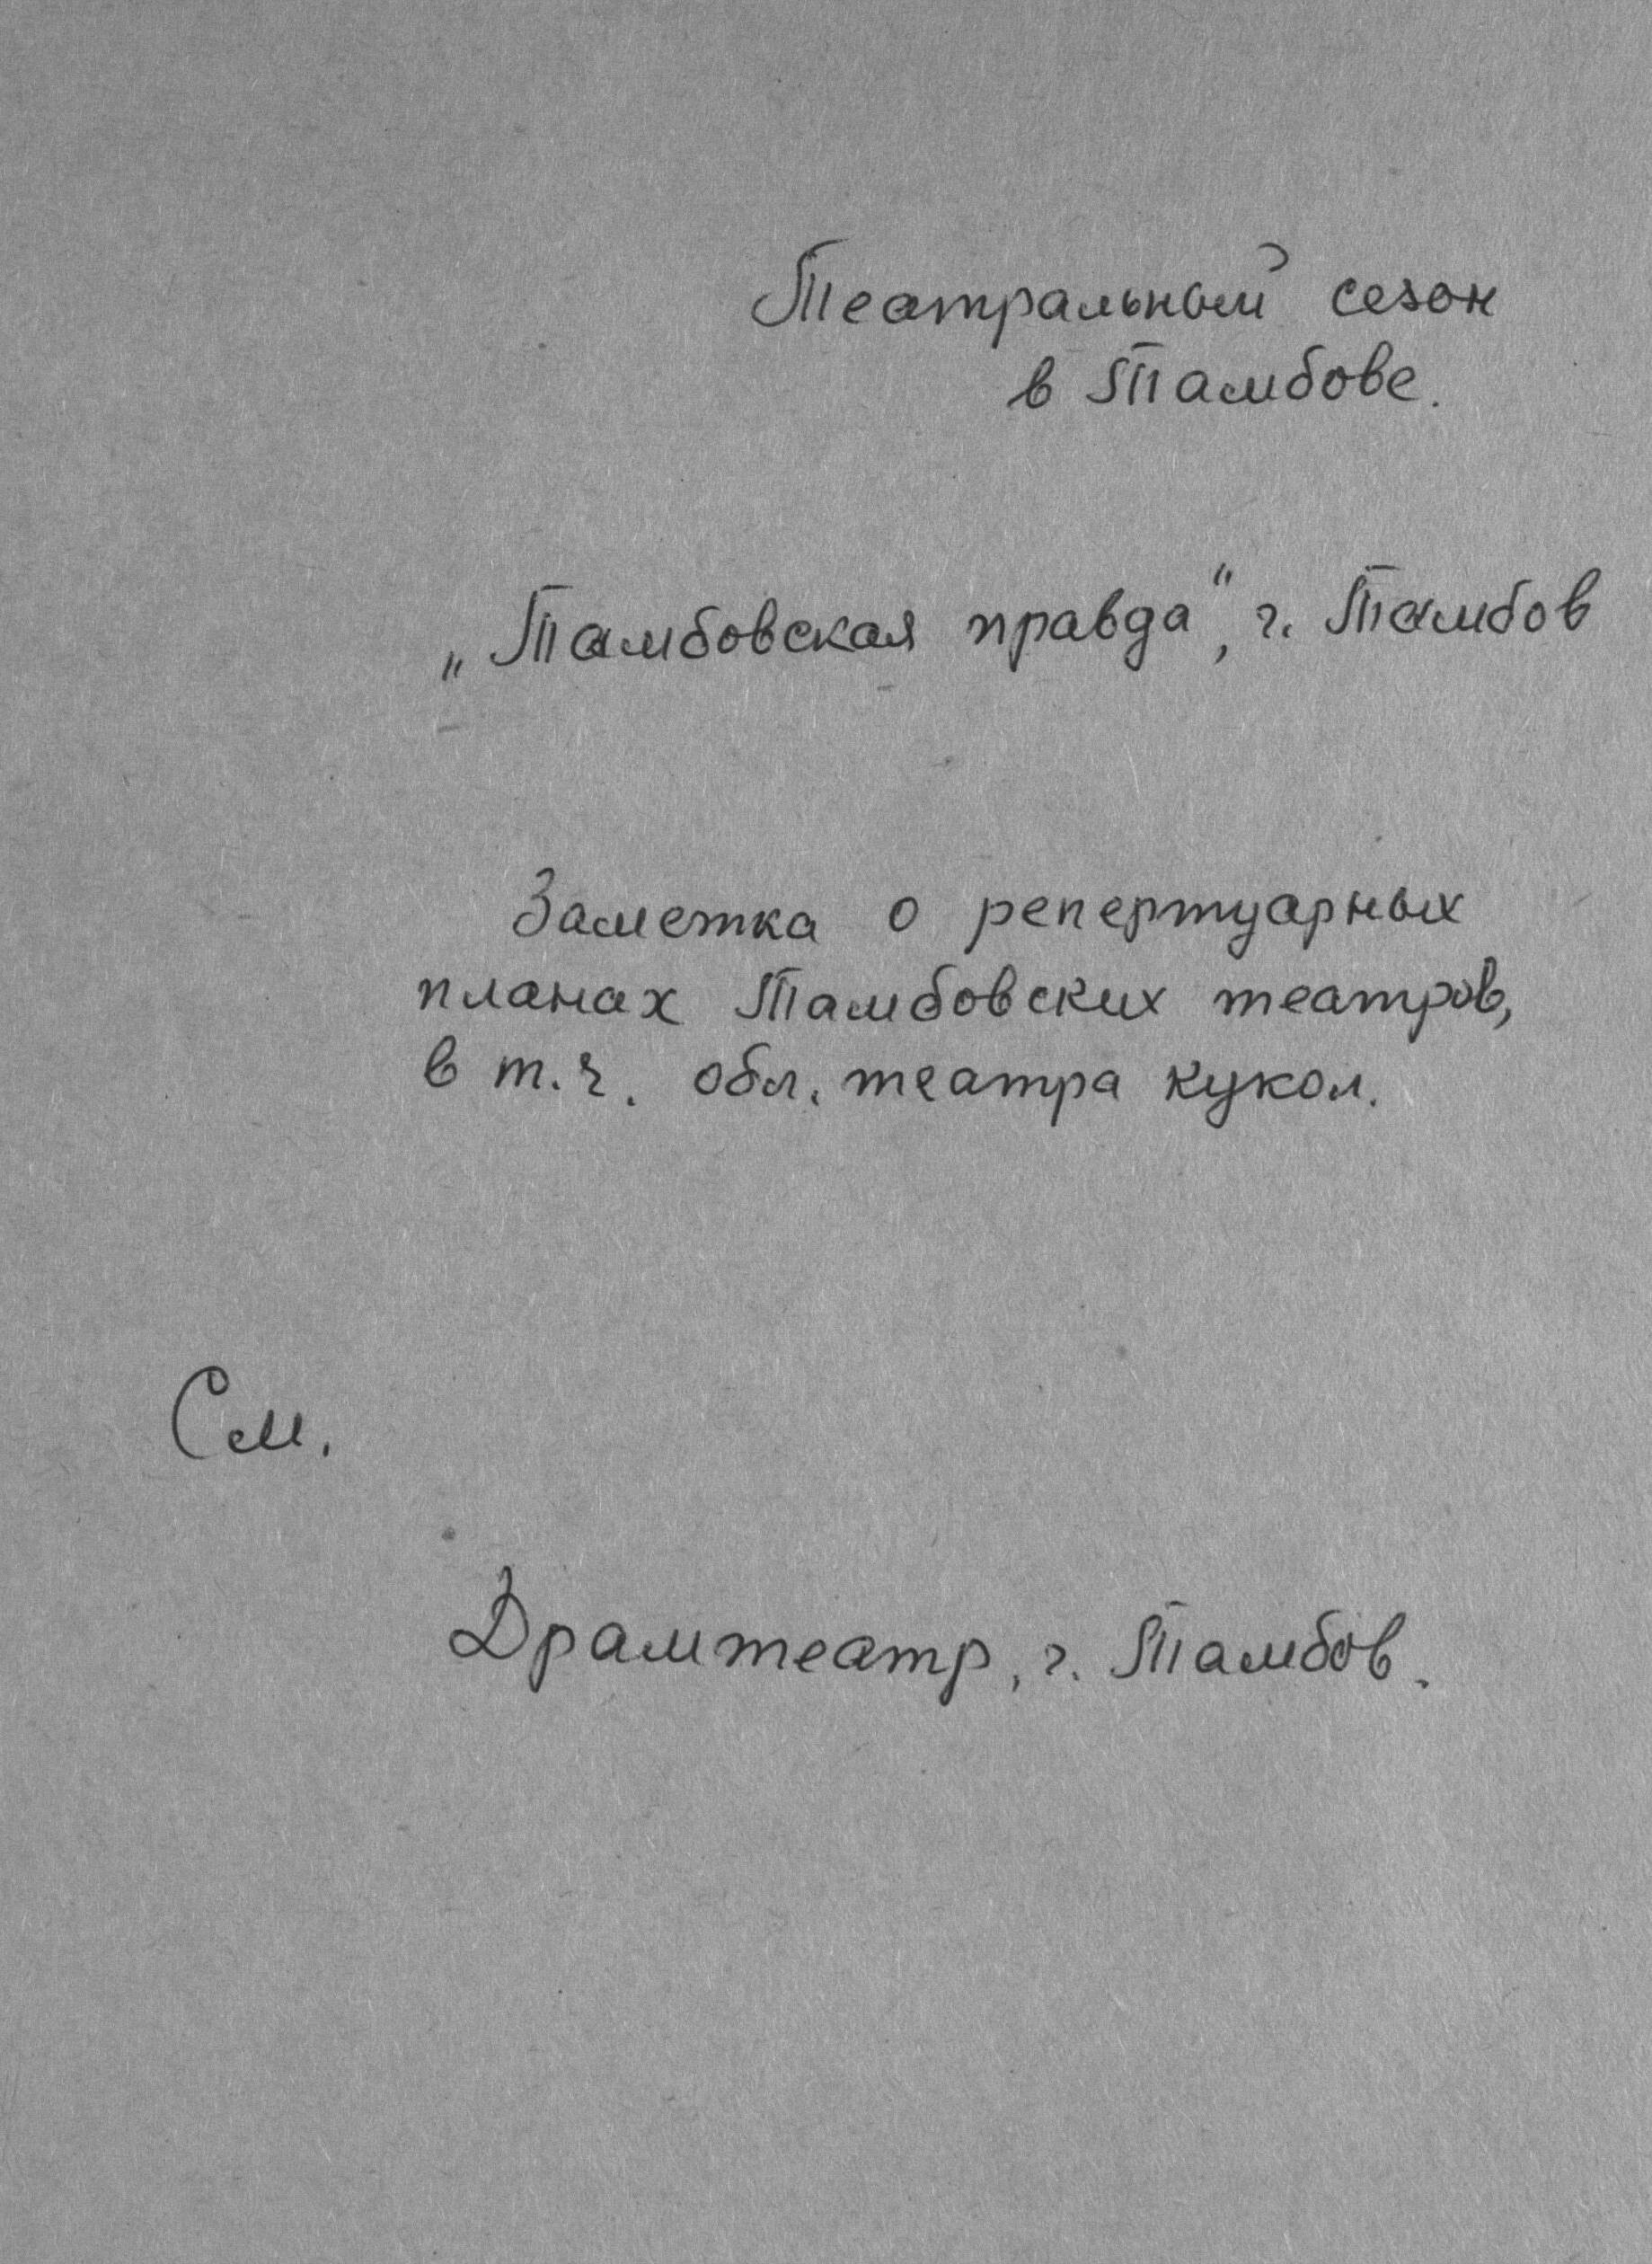 Театральный сезон
в Тамбове.
„Тамбовская правда“, г. Тамбов
Заметка о репертуарных
планах Тамбовских театров,
в т.ч. обл. театра кукол.
См.
Драмтеатр, г. Тамбов.